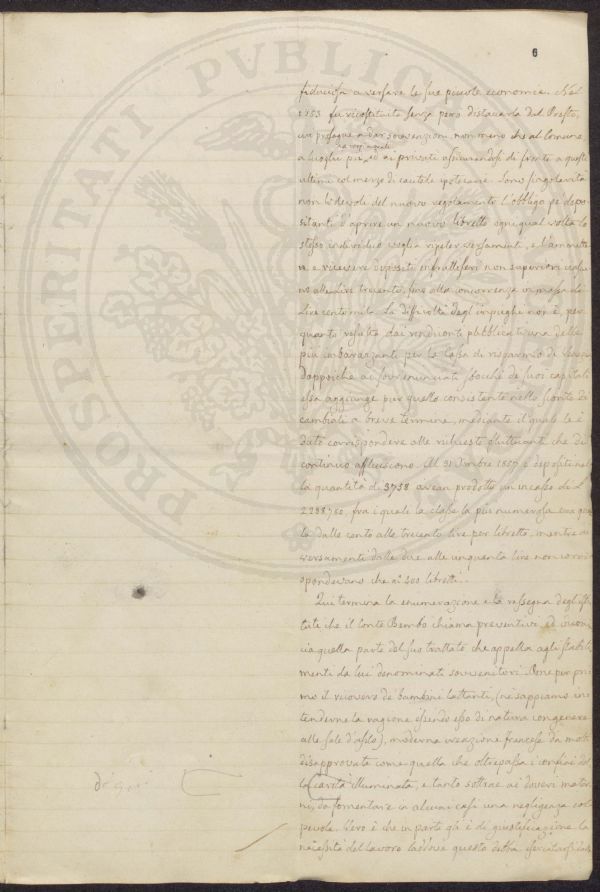 6
fiducia a versare le sue piccole economie. Nel
1853 fu ricostituita senza però distaccarla dal Presto,
cui prosegue a dar sovvenzioni, non meno che al Comune,
ai privati assicurandosi di fronte a questi
ultimi col mezzo di cautele ipotecarie. Sono singolarità
non lodevole del nuovo regolamento l'obbligo pe' depo-
sitanti d'aprire un nuovo libretto ogni qual volta lo
stesso individuo voglia ripeter versamenti, e l'ammette-
re e ricevere depositi infruttiferi non superiori
alle Lire trecento, fino alla concorrenza in massa di
Lire centomila. La difficoltà degl'impieghi non è, per
quanto risulta dai rendiconti pubblicati una delle
più imbarazzanti per la Cassa di risparmio di
dappoichè ai sovrenunciati sbocchi de' suoi capitali
essa aggiunge pur quello consistente nello sconto di
cambiali a breve termine, mediante il quale le è
dato corrispondere alle richieste fluttuanti che di
continuo affluiscono. Al 31 Xmbre 1857 i depositi nel
la quantità di 3758 avean prodotto un incasso di L
2288780. fra i quali la classe la più numerosa era quel
la dalle cento alle trecento lire per libretto, mentre ai
versamenti dalle due alle cinquanta lire non corri-
spondevano che a' 400 libretti.
Qui termina la enumerazione e la rassegna degl'Isti-
tuti che il Conte Bembo chiama preventivi, ed incomin
cia quella parte del suo trattato che appella agli stabili
menti da lui denominati sovvenitori. Pone per pri
mo il ricovero de' bambini lattanti, (nè sappiamo in
tenderne la ragione essendo esso di natura congenere
alle sale d'asilo), moderna creazione francese da molti
disapprovata come quella che oltrepassa i confini del
la carità illuminata, e tanto sottrae ai doveri mater
ni, da fomentare in alcuni casi una negligenza col
pevole. Vero è che in parte gli è di giustificazione la
necessità del lavoro laddove questo debba
PROSPERITATI PVBLICAE